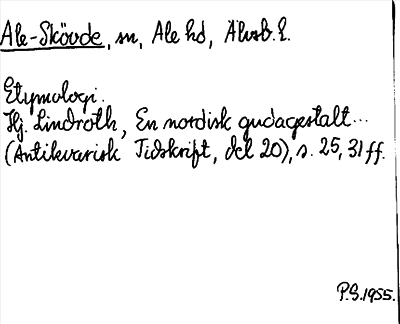 Ale-Skövde, sn, Ale hd, Älvsb. l.
Etymologi.
Hj. Lindroth, En nordisk gudagestalt...
(Antikvarisk Tidskrift, del 20), s. 25, 31 ff.
P.S. 1955.